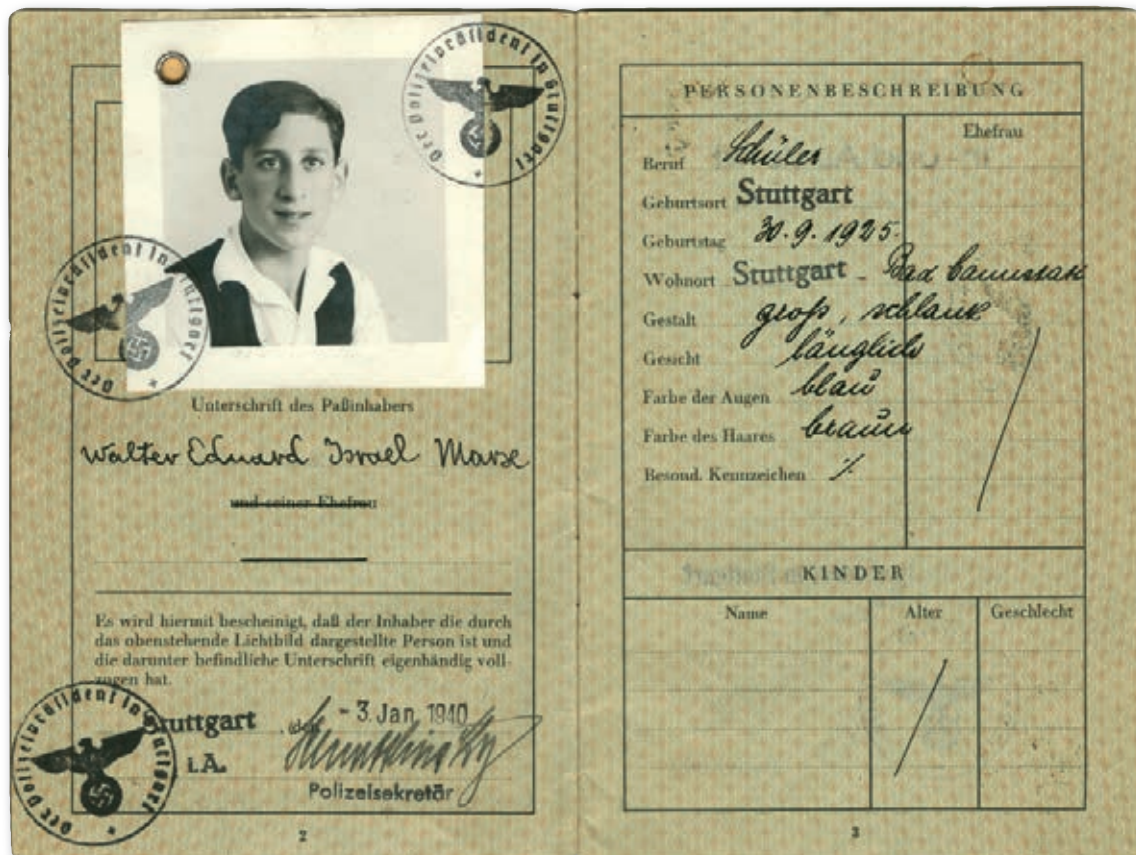 Der Polizeipräsident in Stuttgart
Der Polizeipräsident in Stuttgart
Unterschrift des Paßinhabers
Walter Eduard Israel Marx
und seiner Ehefrau
Es wird hiermit bescheinigt, daß der Inhaber die durch
das obenstehende Lichtbild dargestellte Person ist und
die darunter befindliche Unterschrift eigenhändig voll-
zogen hat.
Der Polizeipräsident in Stuttgart
Stuttgart, den - 3. Jan. 1940
i.A.
Polizeisekretär
2
PERSONENBESCHREIBUNG
Ehefrau
Beruf Schüler
Geburtsort Stuttgart
Geburtstag 30.9.1925.
Wohnort Stuttgart - Bad Cannstatt
Gestalt groß, schlank
Gesicht länglich
Farbe der Augen blau
Farbe des Haares braun
Besond. Kennzeichen ./.
KINDER
Name Alter Geschlecht
3